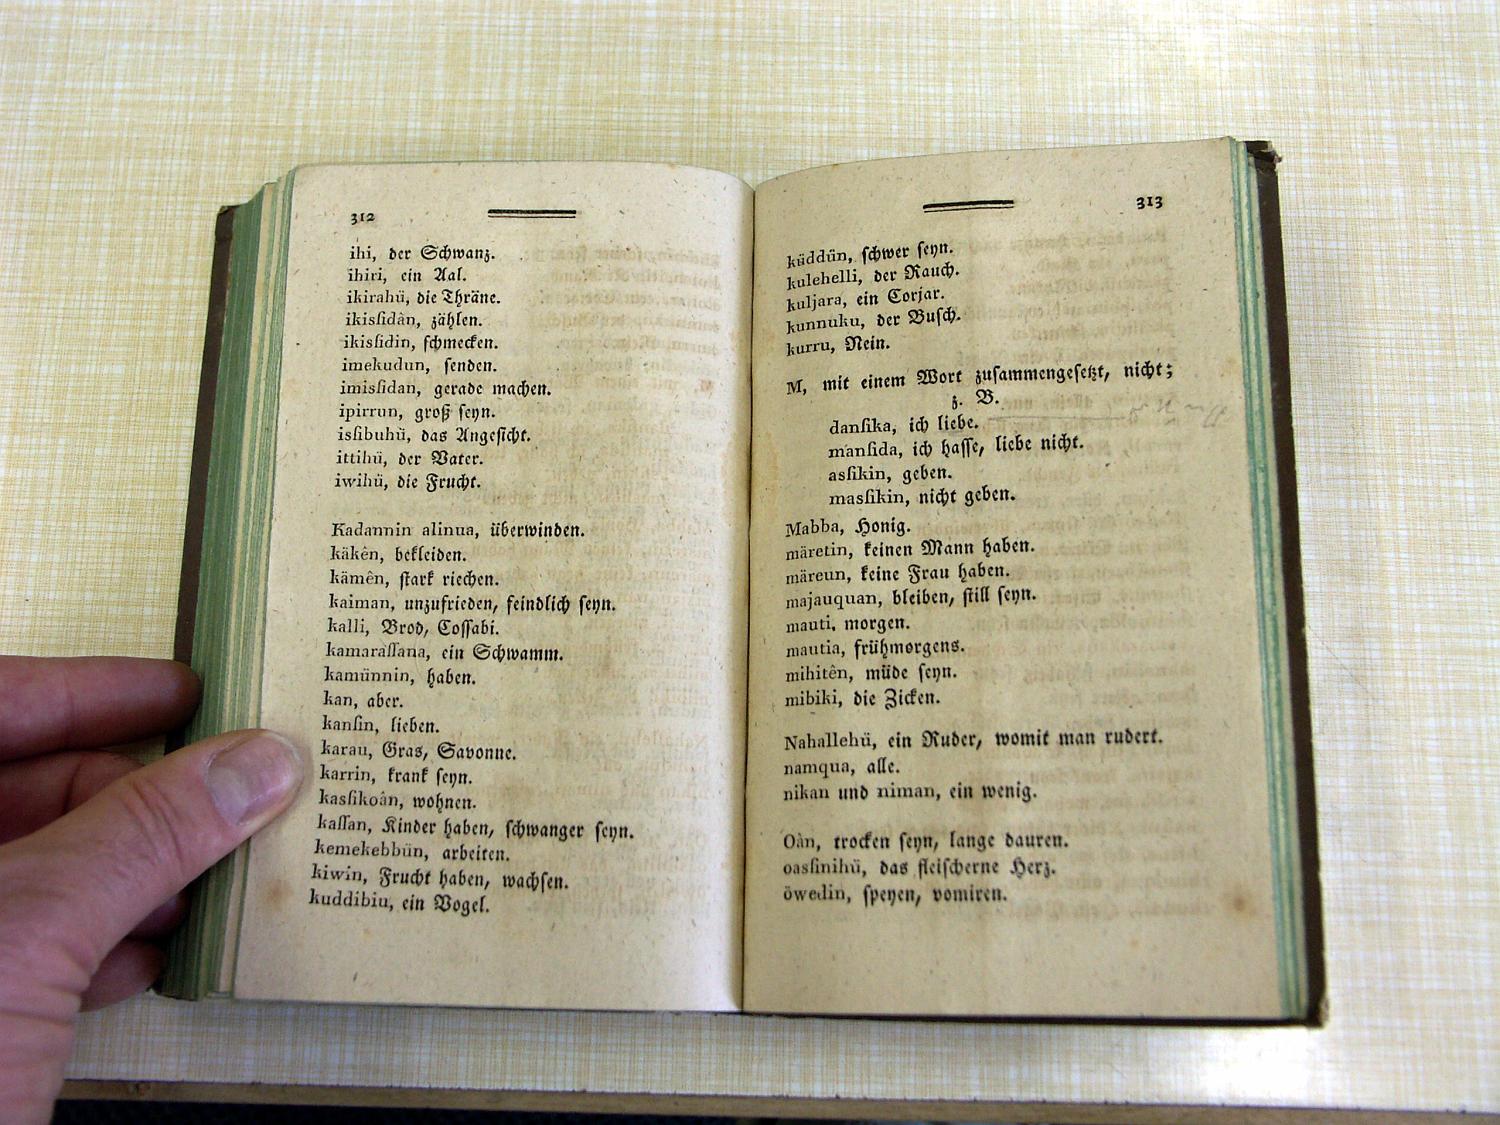 312
ihi, der Schwanz.
ihiri, ein Aal.
ikirahü, die Thräne.
ikissidân, zählen.
ikissidin, schmecken.
imekudun, senden.
imissidan, gerade machen.
ipirrun, groß seyn.
issibuhü, das Angesicht.
ittihü, der Vater.
iwihü, die Frucht.
Kadannin alinua, überwinden.
käkên, bekleiden.
kämên, stark riechen.
kaiman, unzufrieden, feindlich seyn.
kalli, Brod, Cossabi.
kamarassana, ein Schwamm.
kamünnin, haben.
kan, aber.
kansin, lieben.
karau, Gras, Savonne.
karrin, krank seyn.
kassikoân, wohnen.
kassan, Kinder haben, schwanger seyn.
kemekebbün, arbeiten.
kiwin, Frucht haben, wachsen.
kuddibiu, ein Vogel.
313
küddün, schwer seyn.
kulehelli, der Rauch.
kuljara, ein Corjar.
kunnuku, der Busch.
kurru, Nein.
M, mit einem Wort zusammengesetzt, nicht;
z. B.
dansika, ich liebe.
mansida, ich hasse, liebe nicht.
assikin, geben.
massikin, nicht geben.
Mabba, Honig.
märetin, keinen Mann haben.
märeun, keine Frau haben.
majauquan, bleiben, still seyn.
mauti, morgen.
mautia, frühmorgens.
mihitên, müde seyn.
mibiki, die Zicken.
Nahallehü, ein Ruder, womit man rudert.
namqua, alle.
nikan und niman, ein wenig.
Oàn, trocken seyn, lange dauren.
oassinihü, das fleischerne Herz.
öwedin, speyen, vomiren.